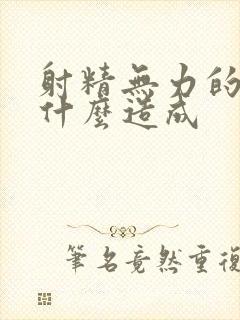 射精無力的
什麼造成
筆名竟然重復